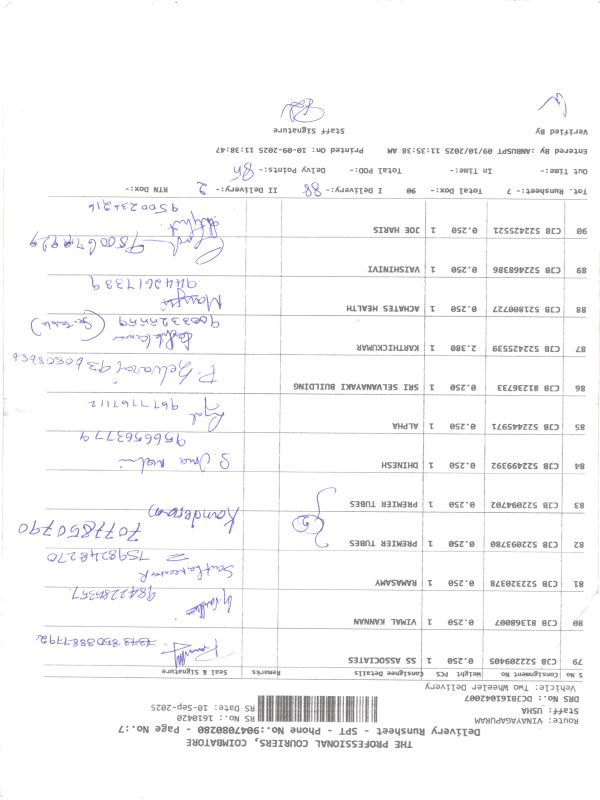 THE PROFESSIONAL COURIERS, COIMBATORE
Delivery Runsheet - SPT - Phone No.:9047080280 - Page No.:7
Route: VINAYAGAPURAM
RS No.: 1610420
Staff: USHA
RS Date: 10-Sep-2025
DRS No.: DC38161042007
Vehicle: Two Wheeler Delivery
S No Consignment No Weight PCS Consignee Details Remarks Seal & Signature
79 CJB 522209405 0.250 1 SS ASSOCIATES 8508887792
80 CJB 81368007 0.250 1 VIMAL KANNAN 9842285357
81 CJB 522320378 0.250 1 RAMASAMY 7598248270
82 CJB 522093780 0.250 1 PREMIER TUBES 7077850790
83 CJB 522094702 0.250 1 PREMIER TUBES
84 CJB 522499392 0.250 1 DHINESH S. Uma 9566563779
85 CJB 522445971 0.250 1 ALPHA 9677167112
86 CJB 81236733 0.250 1 SRI SELVANAYAKI BUILDING P. Selvaraj 9360808686
87 CJB 522425539 2.380 1 KARTHICKUMAR
88 CJB 527180072 0.250 1 ACHATES HEALTH 9442617339
89 CJB 522468386 0.250 1 VAISHINIVI
90 CJB 522421521 0.250 1 JOE HARIS 9500234216
Tot. Runsheet:- 7 Total Dox:- 90 I Delivery:- 88 II Delivery:- 2 RTN Dox:-
Out Time:- In Time:- Total POD:- Delvy Points:- 86
Entered By :ANBUSPT 09/10/2025 11:35:38 AM Printed On: 10-09-2025 11:38:47
Verified By Staff Signature